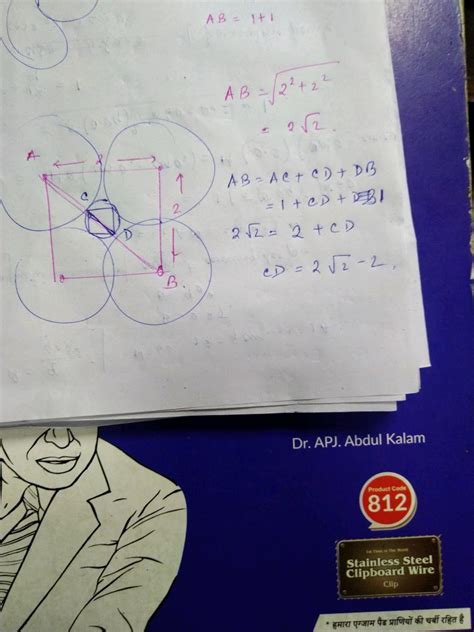 AB = 1+1
AB = √2² + 2²
= 2√2.
A
2
C
2
D
B
AB = AC + CD + DB
= 1 + CD + 1
2√2 = 2 + CD
CD = 2√2 - 2.
Dr. APJ. Abdul Kalam
Product Code
812
Stainless Steel
Clipboard Wire
Clip
* हमारा एग्जाम पैड प्राणियों की चर्बी रहित है